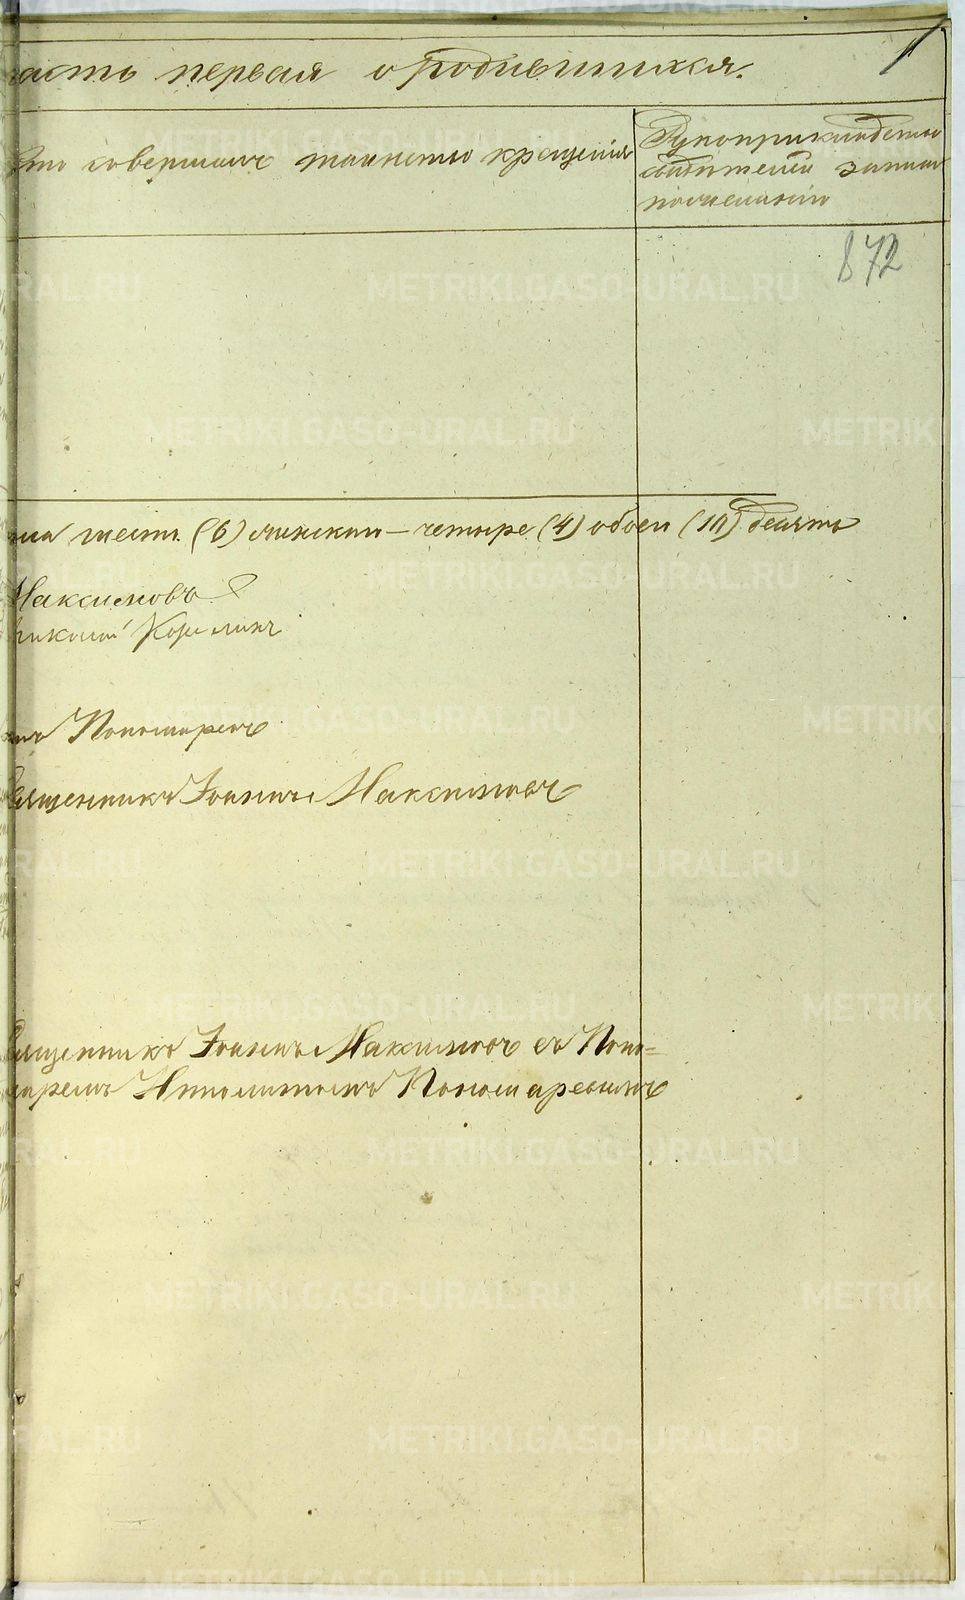 часть первая о родившихся.
Кто совершалъ таинство крещенія
Рукоприкладство
свидетелей записи
по желанію
872
шесть (6) женска – четыре (4) обоего (10) десять
Максимовъ
Николай
Пономарев
Священникъ Іоаннъ Максимовъ
Священникъ Іоаннъ Максимовъ съ Поно=
маремъ Ипполитомъ Пономаревымъ
METRIKI.GASO-URAL.RU